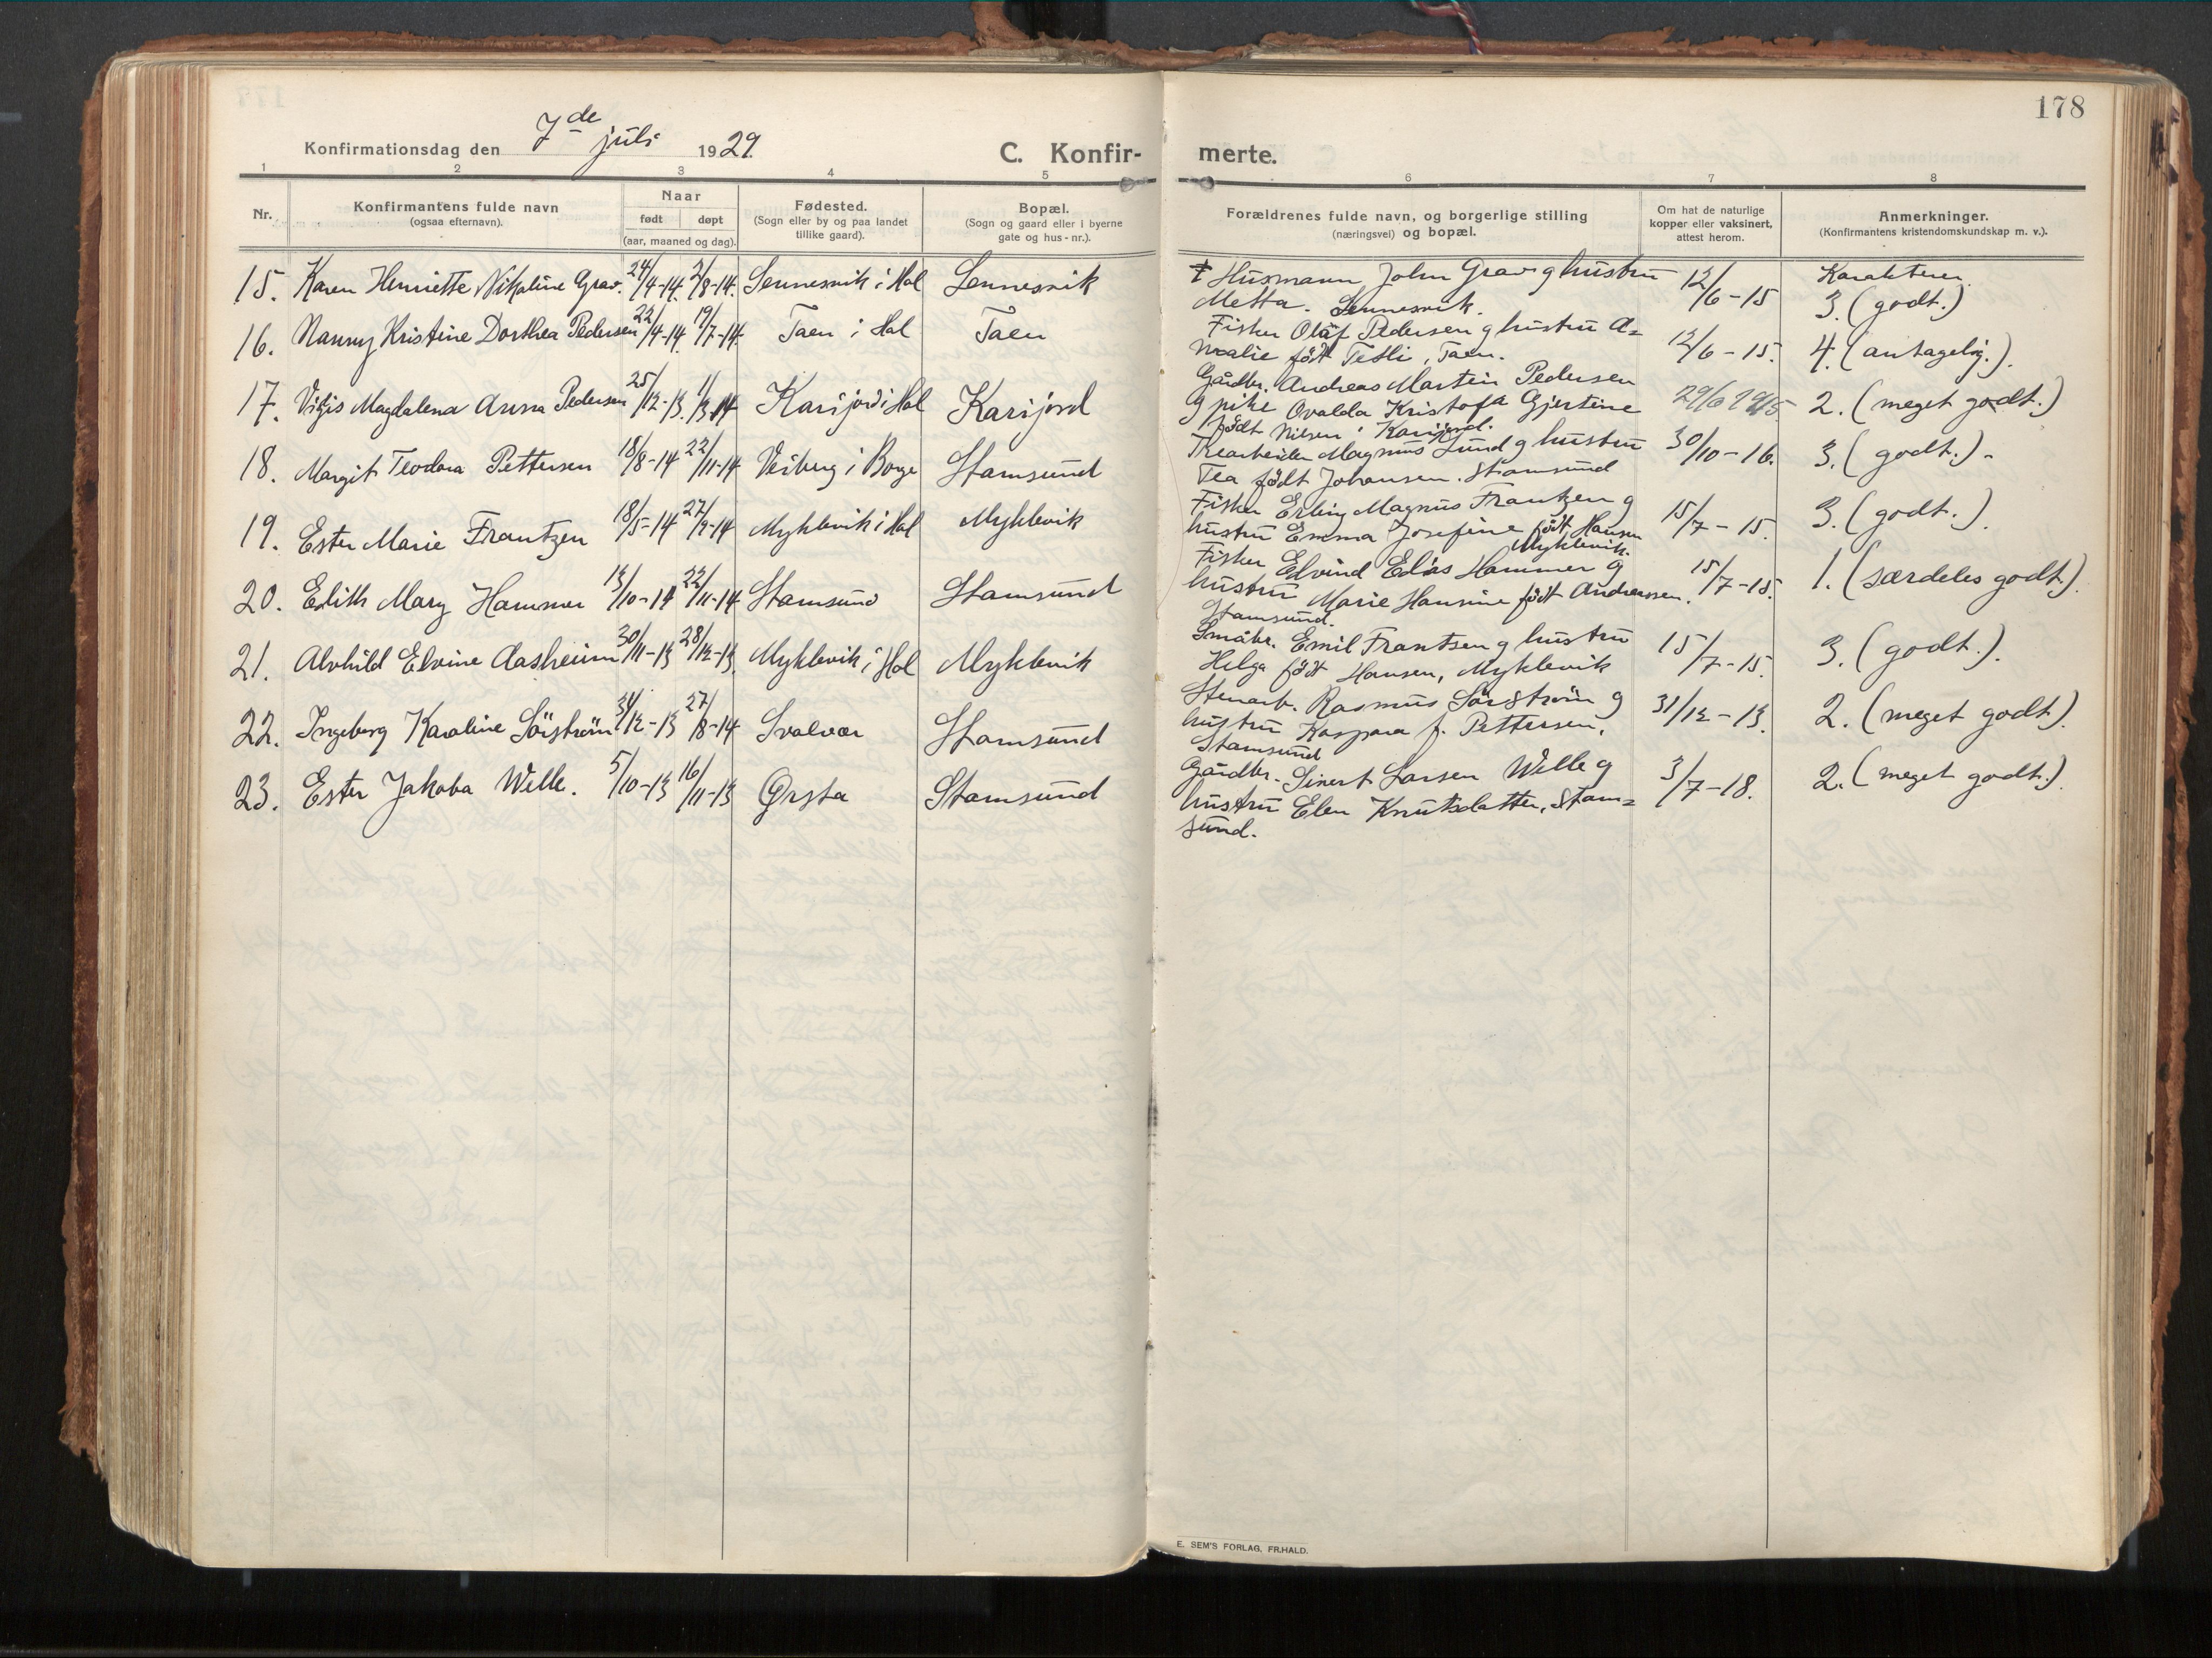 178
Konfirmationsdag den 7de juli 1929.
C. Konfir- merte.
1 2 3 4 5 6 7 8
Nr.
Konfirmantens fulde navn
(ogsaa efternavn).
Naar
født døpt
(aar, maaned og dag).
Fødested.
(Sogn eller by og paa landet
tillike gaard).
Bopæl.
(Sogn og gaard eller i byerne
gate og hus-nr.).
Forældrenes fulde navn, og borgerlige stilling
(næringsvei) og bopæl.
Om hat de naturlige
kopper eller vaksinert,
attest herom.
Anmerkninger.
(Konfirmantens kristendomskundskap m. v.).
15. Karen Henriette Nikoline Grav. 24/4-14. 2/8-14. Sennesvik i Hol Sennesvik
Husmann John Grav g hustru
Metta. Sennesvik.
12/6-15
Karakterer
3. (godt.)
16. Nanny Kristine Dorthea Pedersen 22/4-14. 19/7-14. Taen i Hol Taen
Fisker Olaf Pedersen g hustru A=
malie født Tetli, Taen.
12/6-15. 4. (antagelig.).
17. Vigis Magdalena Anna Pedersen 25/12-13. 1/3-14 Karijord i Hol Karijord
Gårdbr. Andreas Martin Pedersen
g pike Ovalda Kristofa Gjertine
født Nilsen, Karijord.
29/6 1915 2. (meget godt.)
18. Margit Teodora Pettersen 18/8-14 22/11-14 Veiberg i Borge Stamsund
Trearbeider Magnus Lund g hustru
Tea født Johansen. Stamsund
30/10-16. 3. (godt.).
19. Ester Marie Frantzen 18/5-14 27/9-14 Myklevik i Hol Myklevik
Fisker Erling Magnus Frantzen g
hustru Emma Josefine født Hansen
Myklevik.
15/7-15. 3. (godt.).
20. Edith Mary Hammer 13/10-14 22/11-14 Stamsund Stamsund
Fisker Edvind Edias Hammer g
hustru Marie Hansine født Andreassen.
Stamsund.
15/7-15. 1. (særdeles godt.).
21. Alvhild Elvine Aasheim 30/11-13 28/12-13. Myklevik i Hol Myklevik
Småbr. Emil Frantsen g hustru
Helga født Hansen, Myklevik
15/7-15. 3. (godt.).
22. Ingeborg Karoline Sörström 31/12-13 27/8-14 Svolvær Stamsund
Stenarb. Rasmus Sörström g
hustru Kaspara f. Pettersen,
Stamsund
31/12-13. 2. (meget godt).
23. Ester Jakoba Welle. 5/10-13 16/11-13 Ørsta Stamsund
Gårdbr. Sivert Larsen Welle g
hustru Elen Knutsdatter, Stam=
sund.
3/7-18. 2. (meget godt.).
E. SEM'S FORLAG, FR.HALD.